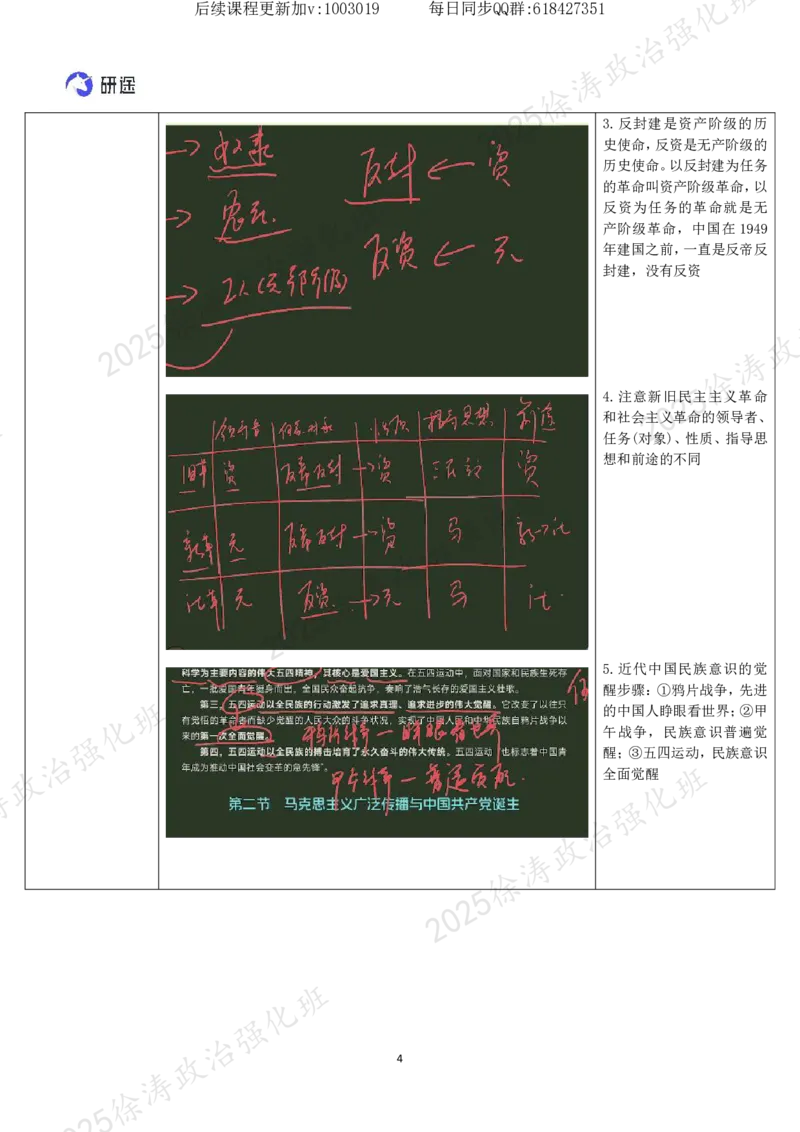 后续课程更新加v:1003019 每日同步QQ群:618427351
研途
3.反封建是资产阶级的历
史使命,反资是无产阶级的
历史使命。以反封建为任务
的革命叫资产阶级革命,以
反资为任务的革命就是无
产阶级革命,中国在 1949
年建国之前,一直是反帝反
封建,没有反资
反封 ← 资
反资 ← 无
4.注意新旧民主主义革命
和社会主义革命的领导者、
任务(对象)、性质、指导思
想和前途的不同
领导者 任务.对象 性质 指导思想 前途
旧革 资 反帝反封 →资 三民主 资
新革 无 反帝反封 →资 马 新→社
社革 无 反资. →无 马 社.
科学为主要内容的伟大五四精神,其核心是爱国主义。在五四运动中,面对国家和民族生死存
亡,一批爱国青年挺身而出,全国民众奋起抗争,奏响了浩气长存的爱国主义壮歌。
第三,五四运动以全民族的行动激发了追求真理、追求进步的伟大觉醒。它改变了以往只
有觉悟的革命者而缺少觉醒的人民大众的斗争状况,实现了中国人民和中华民族自鸦片战争以
来的第一次全面觉醒。
鸦片战争 — 睁眼看世界
第四,五四运动以全民族的搏击培育了永久奋斗的伟大传统。五四运动"也标志着中国青
年成为推动中国社会变革的急先锋"。
甲午战争 — 普遍觉醒.
第二节 马克思主义广泛传播与中国共产党诞生
5.近代中国民族意识的觉
醒步骤:①鸦片战争,先进
的中国人睁眼看世界;②甲
午战争,民族意识普遍觉
醒;③五四运动,民族意识
全面觉醒
4
2025徐涛政治强化班